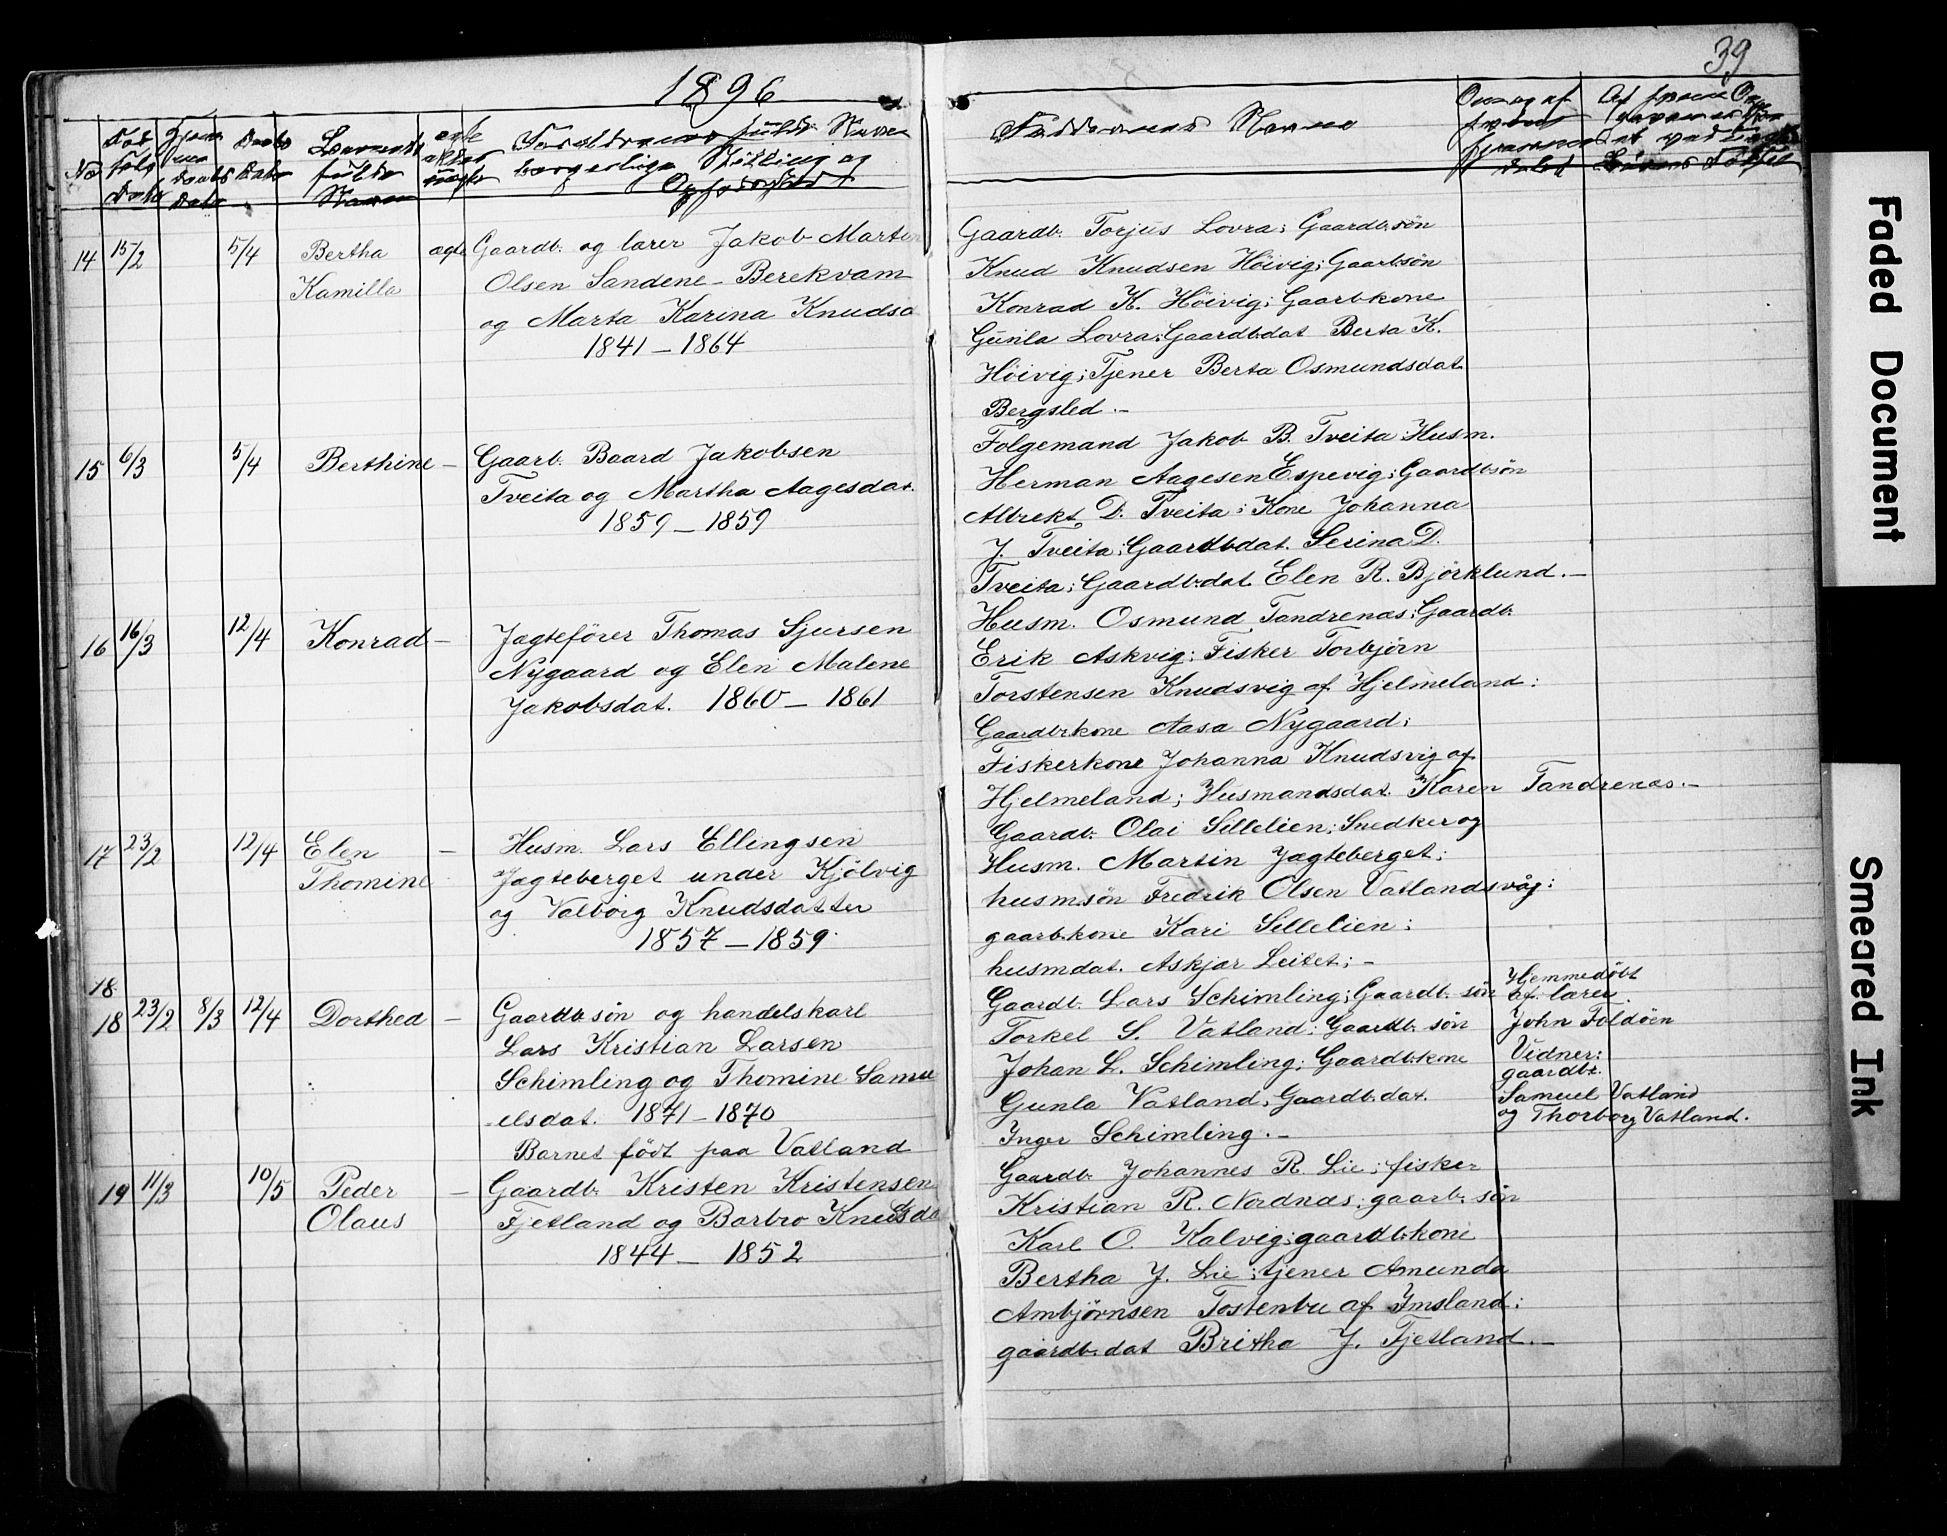 1896
39
No
Barnets
fulde
Navn
Forældrenes fulde Navne
borgerlige Stilling og
Faddernes Navne
14 15/2 5/4 Bertha ægte Gaardb. og lærer Jakob Martin
Kamilla Olsen Sandene - Berekvam
og Marta Karina Knudsd
1841 - 1864
Gaardb. Torjus Lovra; Gaardb.søn
Knud Knudsen Höivig; Gaarb.søn
Konrad K. Höivig; Gaarb.kone
Gunla Lovra; Gaardb.dat Berta K.
Höivig; Tjener Berta Osmundsdat.
Bergsled. -
15 6/3 5/4 Berthine - Gaarb. Baard Jakobsen
Tveita og Martha Aagesdat.
1859 - 1859
Folgemand Jakob B. Tveita Husm.
Herman Aagesen Espevig; Gaardb.søn
Albrekt D. Tveita; Kone Johanna
J. Tveita; Gaardb.dat. Serina D.
Tveita; Gaardb.dat. Elen R. Björklund. -
16 16/3 12/4 Konrad - Jagtefører Thomas Sjursen
Nygaard og Elen Malene
Jakobsdat. 1860 - 1861
Husm. Osmund Tandrenæs; Gaardb.
Erik Askvig; Fisker Torbjörn
Torstensen Knudsvig af Hjelmeland;
Gaardb.kone Aasa Nygaard;
Fiskerkone Johanna Knudsvig af
Hjelmeland; Husmandsdat. Karen Tandrenæs. -
17 23/2 12/4 Elen - Husm. Lars Ellingsen
Thomine Jagteberget under Kjölvig
og Valborg Knudsdatter
1857 - 1859
Gaardb. Olai Sillelien; Snedker og
Husm. Martin Jagteberget;
husmsön Fredrik Olsen Vatlandsvåg;
gaarb.kone Kari Sillelien;
husmdat. Askjær Leitet; -
18
18 23/2 8/3 12/4 Dorthea - Gaardb.søn og handelskarl
Lars Kristian Larsen
Schimling og Thomine Samu
elsdat. 1871 - 1870
Barnet födt paa Vatland
Gaardb. Lars Schimling; Gaardb. søn
Torkel S. Vatland; Gaardb. søn
Johan L. Schimling; Gaardb.kone
Gunla Vatland; Gaardb.dat.
Inger Schimling. -
Hjemmedöbt
af lærer
John Foldöen
Vidner:
gaardbr.
Samuel Vatland
og Thorborg Vatland.
19 11/3 10/5 Peder - Gaardb. Kristen Kristensen
Olaus Fjetland og Barbro Knudsda
1844 - 1852
Gaardb. Johannes R. Lie; fisker
Kristian R. Nordnæs; gaarb. søn
Karl O. Kalvig; gaardb.kone
Bertha J. Lie; tjener Amunda
Ambjørnsen Tostenbu af Imsland;
gaardb.dat Britha J. Fjetland. -
Faded Document
Smeared Ink